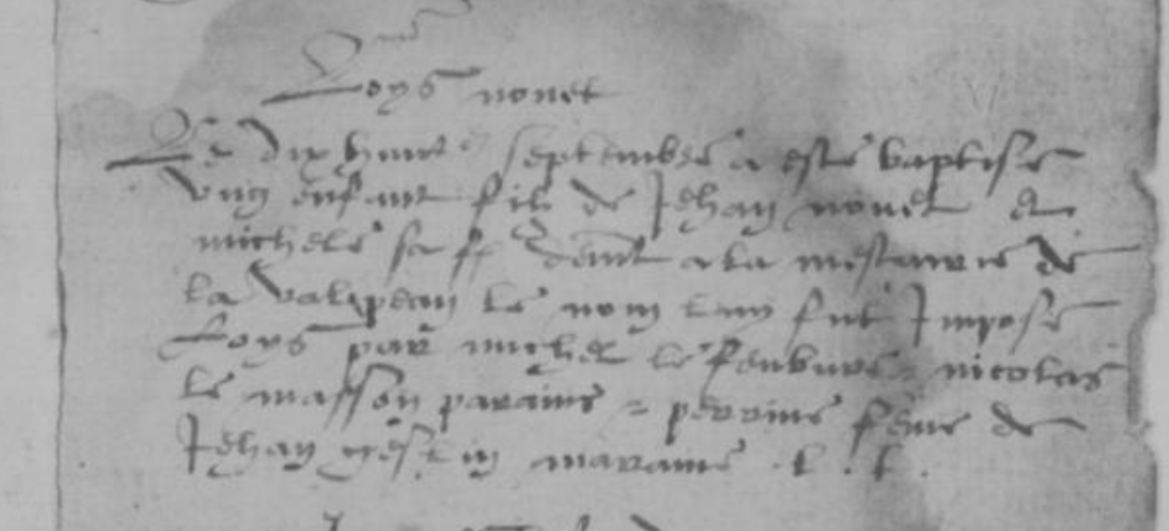 Loys nouet
Le dix huict septembre a este baptise
ung enfant filz de Jehan nouet et
michele sa ff demt a la mestairie de
la le nom luy fut Impose
Loys par michel le febuvre nicolas
le masson parains perrine feme de
Jehan maraine